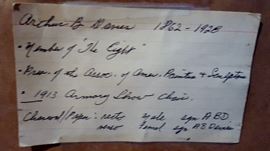 Arthur B Davies 1862-1928
• Member of "The Eight"
• Pres. of the Assoc. of Amer. Painters & Sculptors
• 1913 Armory Show Chair.
Charcoal/Paper: recto male sgn ABD
verso Femal sgn AB Davies